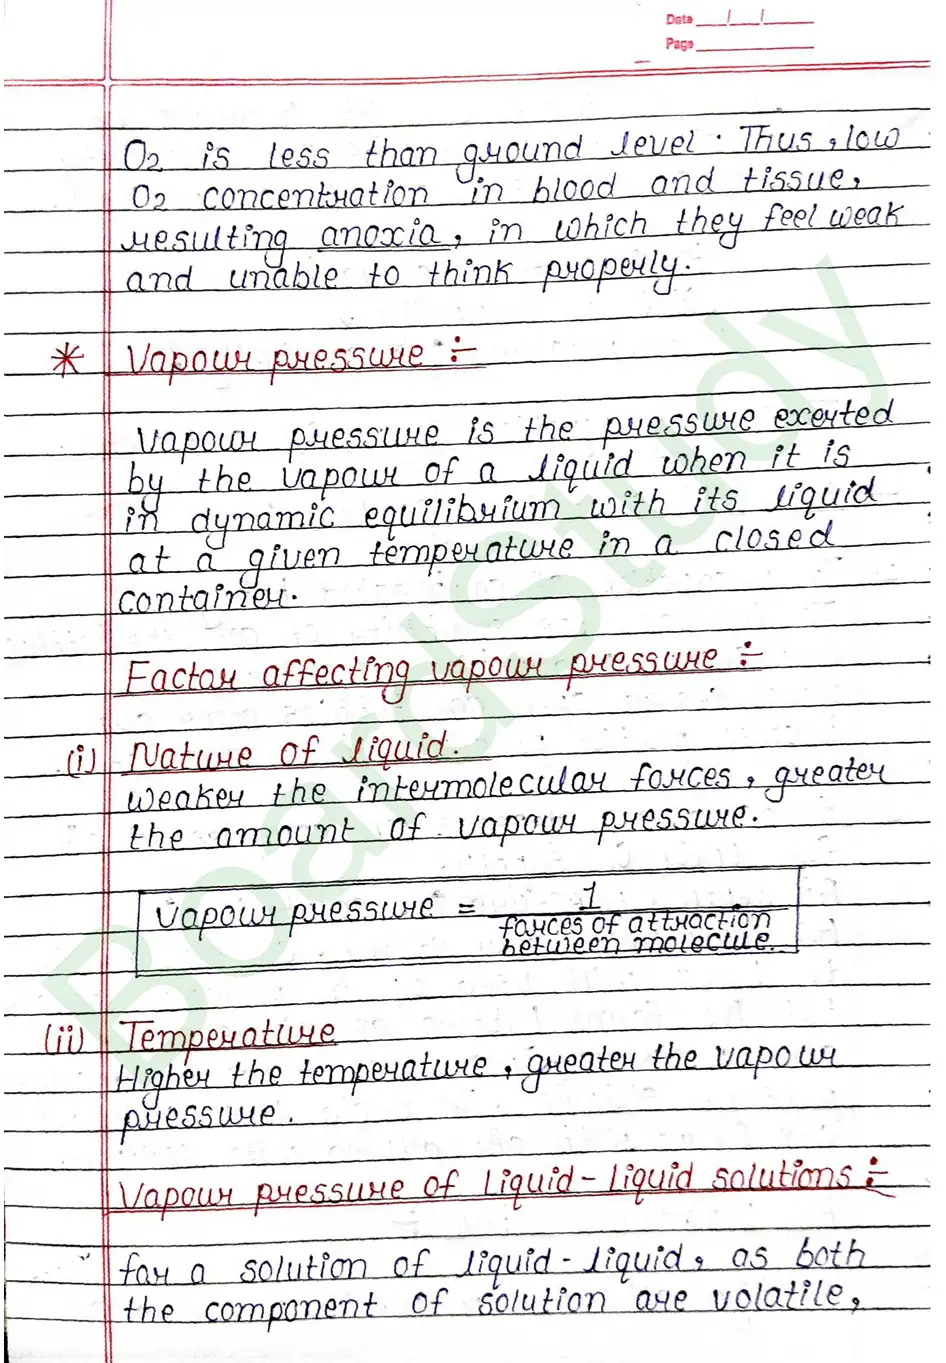 Date ___/___/___
Page ___
O2 is less than ground level. Thus, low
O2 concentration in blood and tissue,
resulting anoxia, in which they feel weak
and unable to think properly.
* Vapour pressure :-
Vapour pressure is the pressure exerted
by the vapour of a liquid when it is
in dynamic equilibrium with its liquid
at a given temperature in a closed
container.
Factor affecting vapour pressure :-
(i) Nature of liquid.
Weaker the intermolecular forces, greater
the amount of vapour pressure.
Vapour pressure = 1
forces of attraction
between molecule.
(ii) Temperature
Higher the temperature, greater the vapour
pressure.
Vapour pressure of Liquid-Liquid solutions :-
for a solution of liquid-liquid, as both
the component of solution are volatile,
BoardStudy